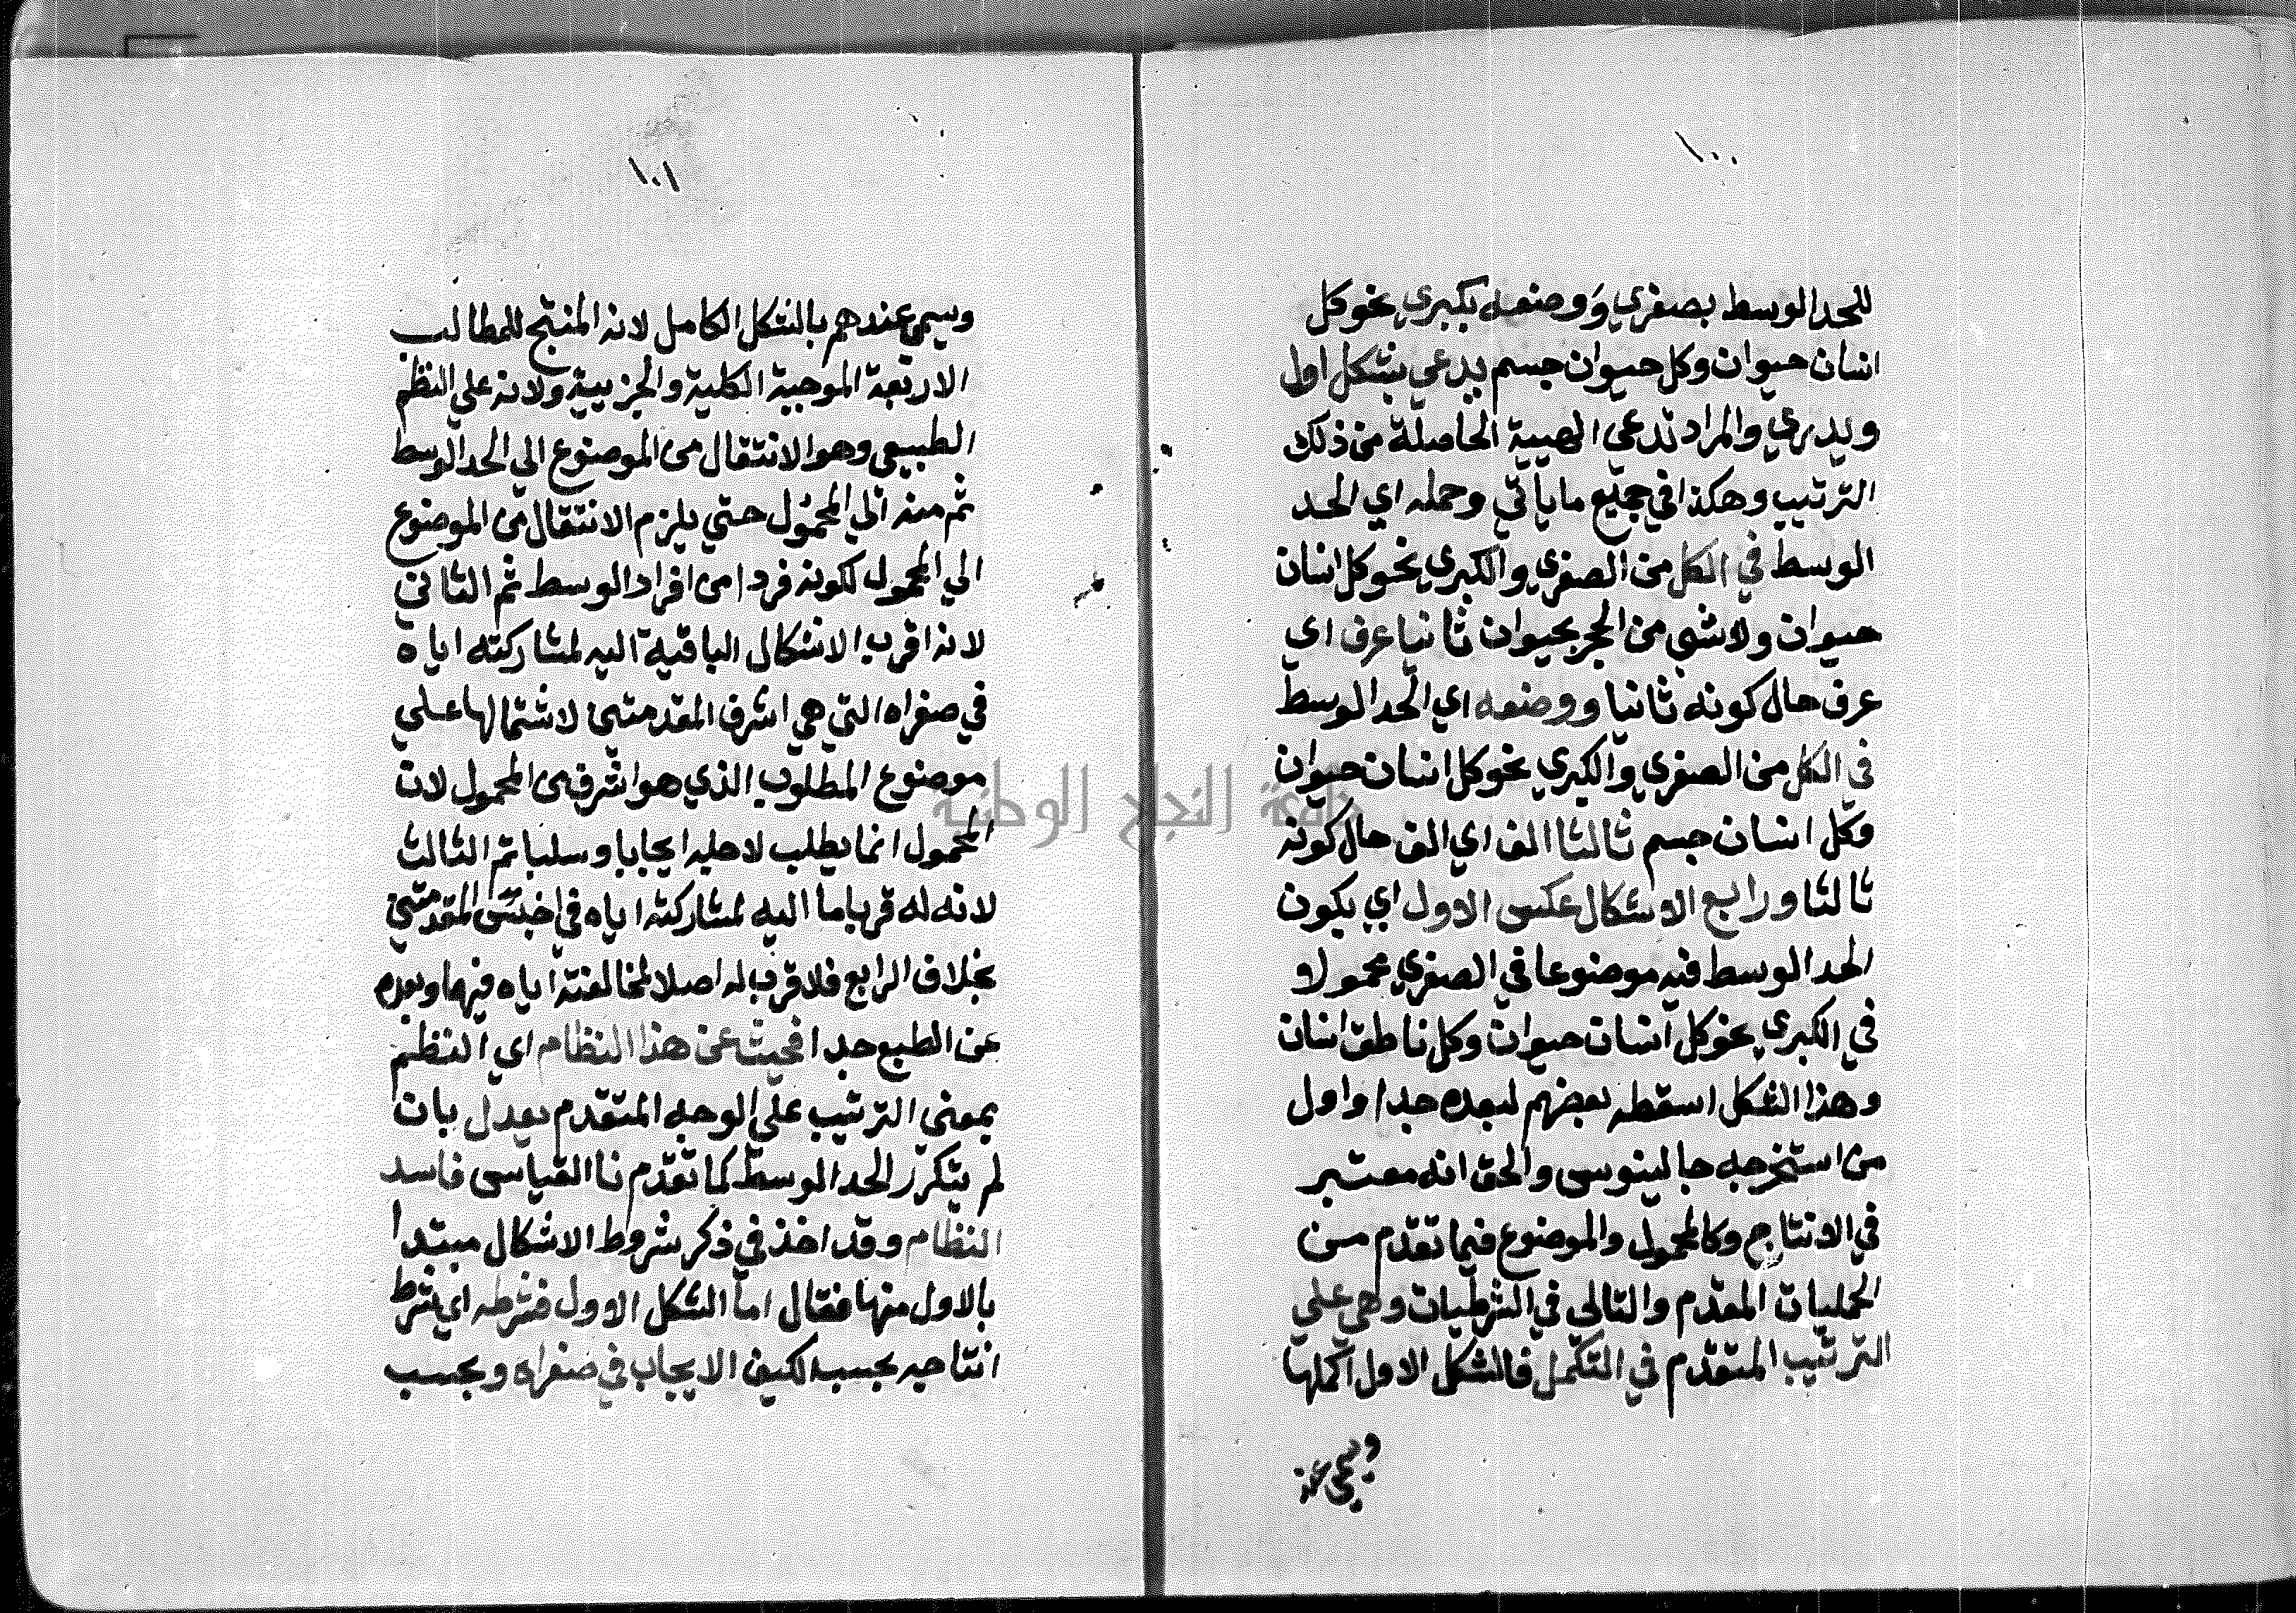 ١٠٠
للحد الوسط بصغري ووضعه بكبري نحو كل
انسان حيوان وكل حيوان جسم يدعي بشكل اول
ويدري والمراد تدعي الهيية الحاصلة من ذلك
الترتيب وهكذا في جميع ما ياتي وحمله اي الحد
الوسط في الكل من الصغري والكبري نحو كل انسان
حيوان ولا شي من الحجر بحيوان ثانيا عرف اي
عرف حال كونه ثانيا ووضعه اي الحد الوسط
في الكل من الصغري والكبري نحو كل انسان حيوان
وكل انسان جسم ثالثا الف اي الف حال كونه
ثالثا ورابع الاشكال عكس الاول اي يكون
الحد الوسط فيه موضوعا في الصغري محمولا
في الكبري نحو كل انسان حيوان وكل ناطق انسان
وهذا الشكل اسقطه بعضهم لبعده جدا واول
من استخرجه جالينوس والحق انه معتبر
في الانتاج وكالمحمول والموضوع فيما تقدم من
الحمليات المقدم والتالي في الشرطيات وهي علي
الترتيب المتقدم في التكمل فالشكل الاول اكملها
ويسمي عند
١٠١
ويسمي عندهم بالشكل الكامل لانه المنتج للمطالب
الاربعة الموجبة الكلية والجزيية ولانه علي النظم
الطبيعي وهو الانتقال من الموضوع الي الحد الوسط
ثم منه الي المحمول حتي يلزم الانتقال من الموضوع
الي المحمول لكونه فردا من افراد الوسط ثم الثاني
لانه اقرب الاشكال الباقية اليه لمشاركته اياه
في صغراه التي هي اشرف المقدمتين لاشتمالها علي
موضوع المطلوب الذي هو اشرف من المحمول لان
المحمول انما يطلب لاجله ايجابا وسلبا ثم الثالث
لانه له قربا ما اليه لمشاركته اياه في اخس المقدمتين
بخلاف الرابع فلا قرب له اصلا لمخالفته اياه فيهما وبعده
عن الطبع جدا فحيث عن هذا النظام اي النظم
بمعني الترتيب علي الوجه المتقدم يعدل بان
لم يتكرر الحد الوسط كما تقدم فا القياس فاسد
النظام وقد اخذ في ذكر شروط الاشكال مبتدا
بالاول منها فقال اما الشكل الاول فشرطه اي شرط
انتاجه بحسب الكيف الايجاب في صغراه وبحسب
جامعة النجاح الوطنية